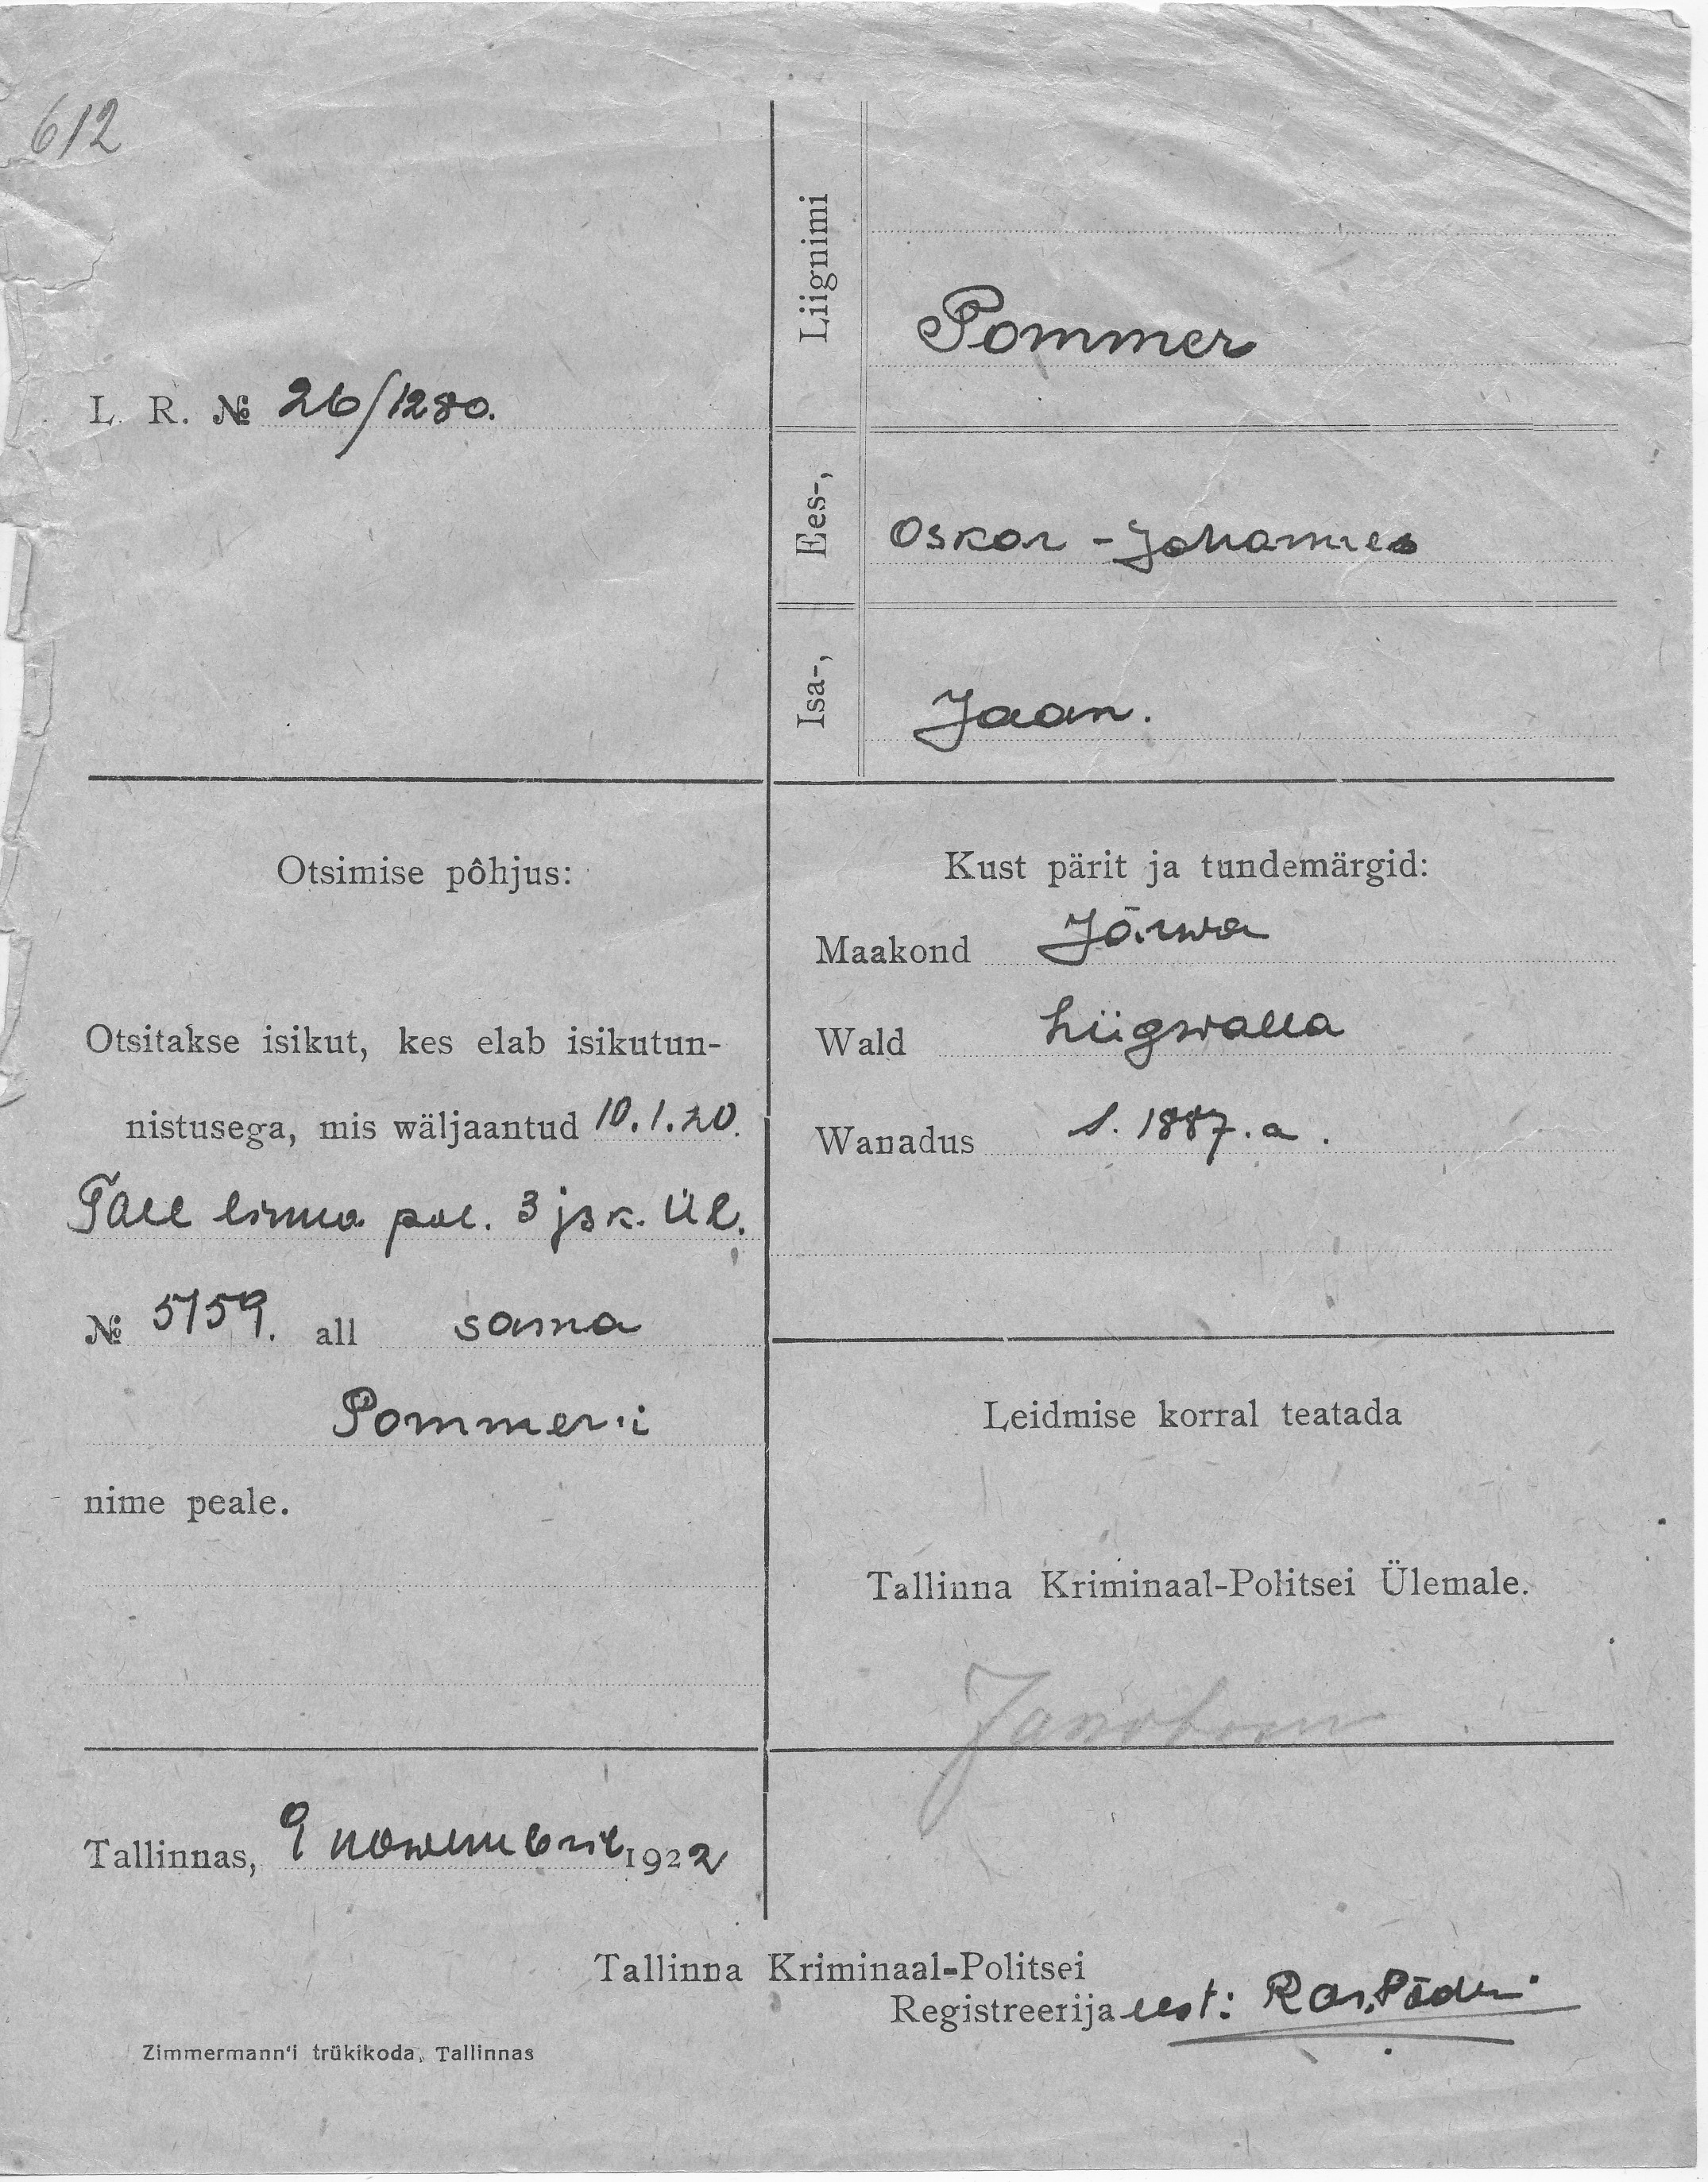 612
L. R. № 26/1280.
Liignimi
Pommer
Ees-,
Oskar - Johannes
Isa-,
Jaan.
Otsimise pôhjus:
Otsitakse isikut, kes elab isikutun-
nistusega, mis wäljaantud 10.1.20.
Tall linna pol. 3 jsk. Ül.
№ 5159. all sama
Pommer'i
nime peale.
Tallinnas, 9 nowembril 1922
Kust pärit ja tundemärgid:
Maakond Järwa
Wald Liigwalla
Wanadus s. 1887. a.
Leidmise korral teatada
Tallinna Kriminaal-Politsei Ülemale.
Tallinna Kriminaal-Politsei
Registreerija eest:
Zimmermann'i trükikoda, Tallinnas